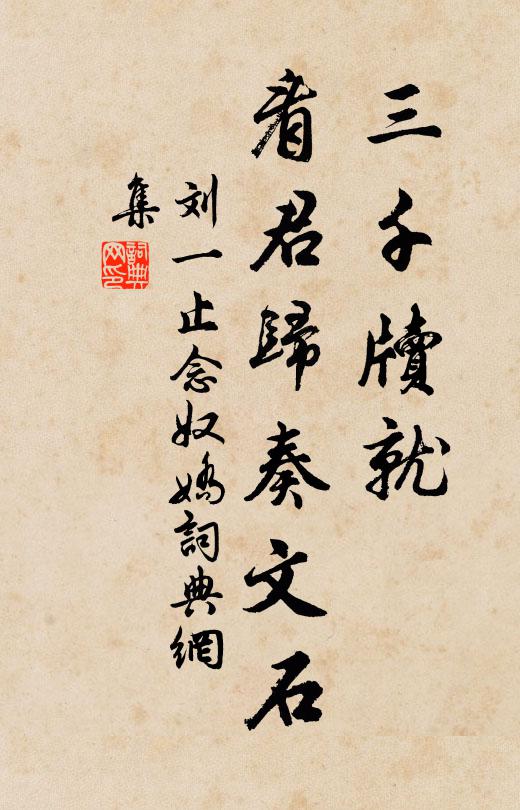 三千牘就
看君歸奏文石
刘一止念奴嬌詞典網
集
詞典網印